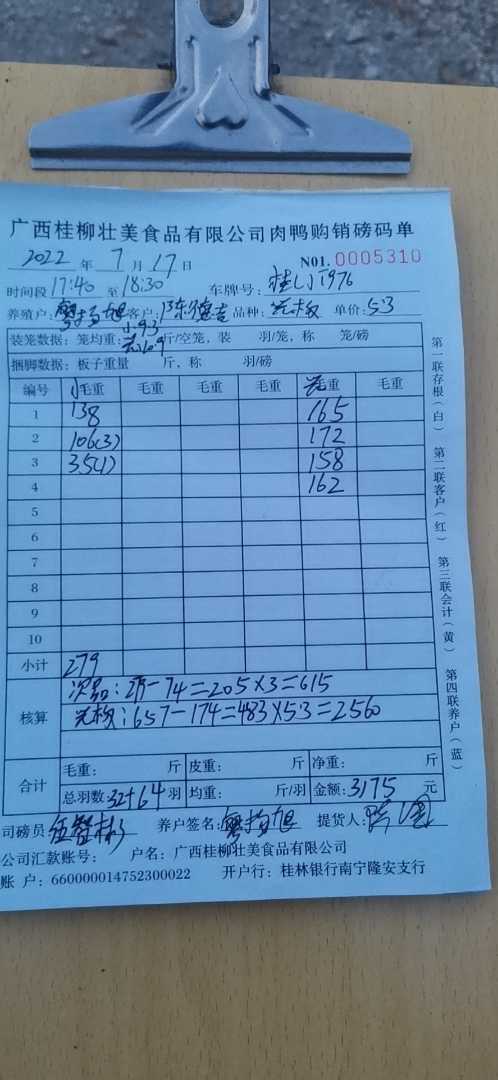 广西桂柳壮美食品有限公司肉鸭购销磅码单
2022 年 7 月 17 日 N01. 0005310
时间段 17:40 至 18:30 车牌号: 桂L J1976
养殖户: 客户: 陈 品种: 单价: 5.3
装笼数据: 笼均重: 小9.3 10.9 斤/空笼, 装 羽/笼, 称 笼/磅
捆脚数据: 板子重量 斤, 称 羽/磅
编号 小毛重 毛重 毛重 毛重 毛重 毛重
1 138 165
2 106(3) 172
3 35(1) 158
4 162
5
6
7
8
9
10
小计 279
核算 次品: 279-74=205×3=615
657-174=483×5.3=2560
合计 毛重: 斤 皮重: 斤 净重: 斤
总羽数 32+64 羽 均重: 斤/羽 金额: 3175 元
司磅员 养户签名: 提货人:
公司汇款账号: 户名: 广西桂柳壮美食品有限公司
账 户: 660000014752300022 开户行: 桂林银行南宁隆安支行
第一联存根(白) 第二联客户(红) 第三联会计(黄) 第四联养户(蓝)